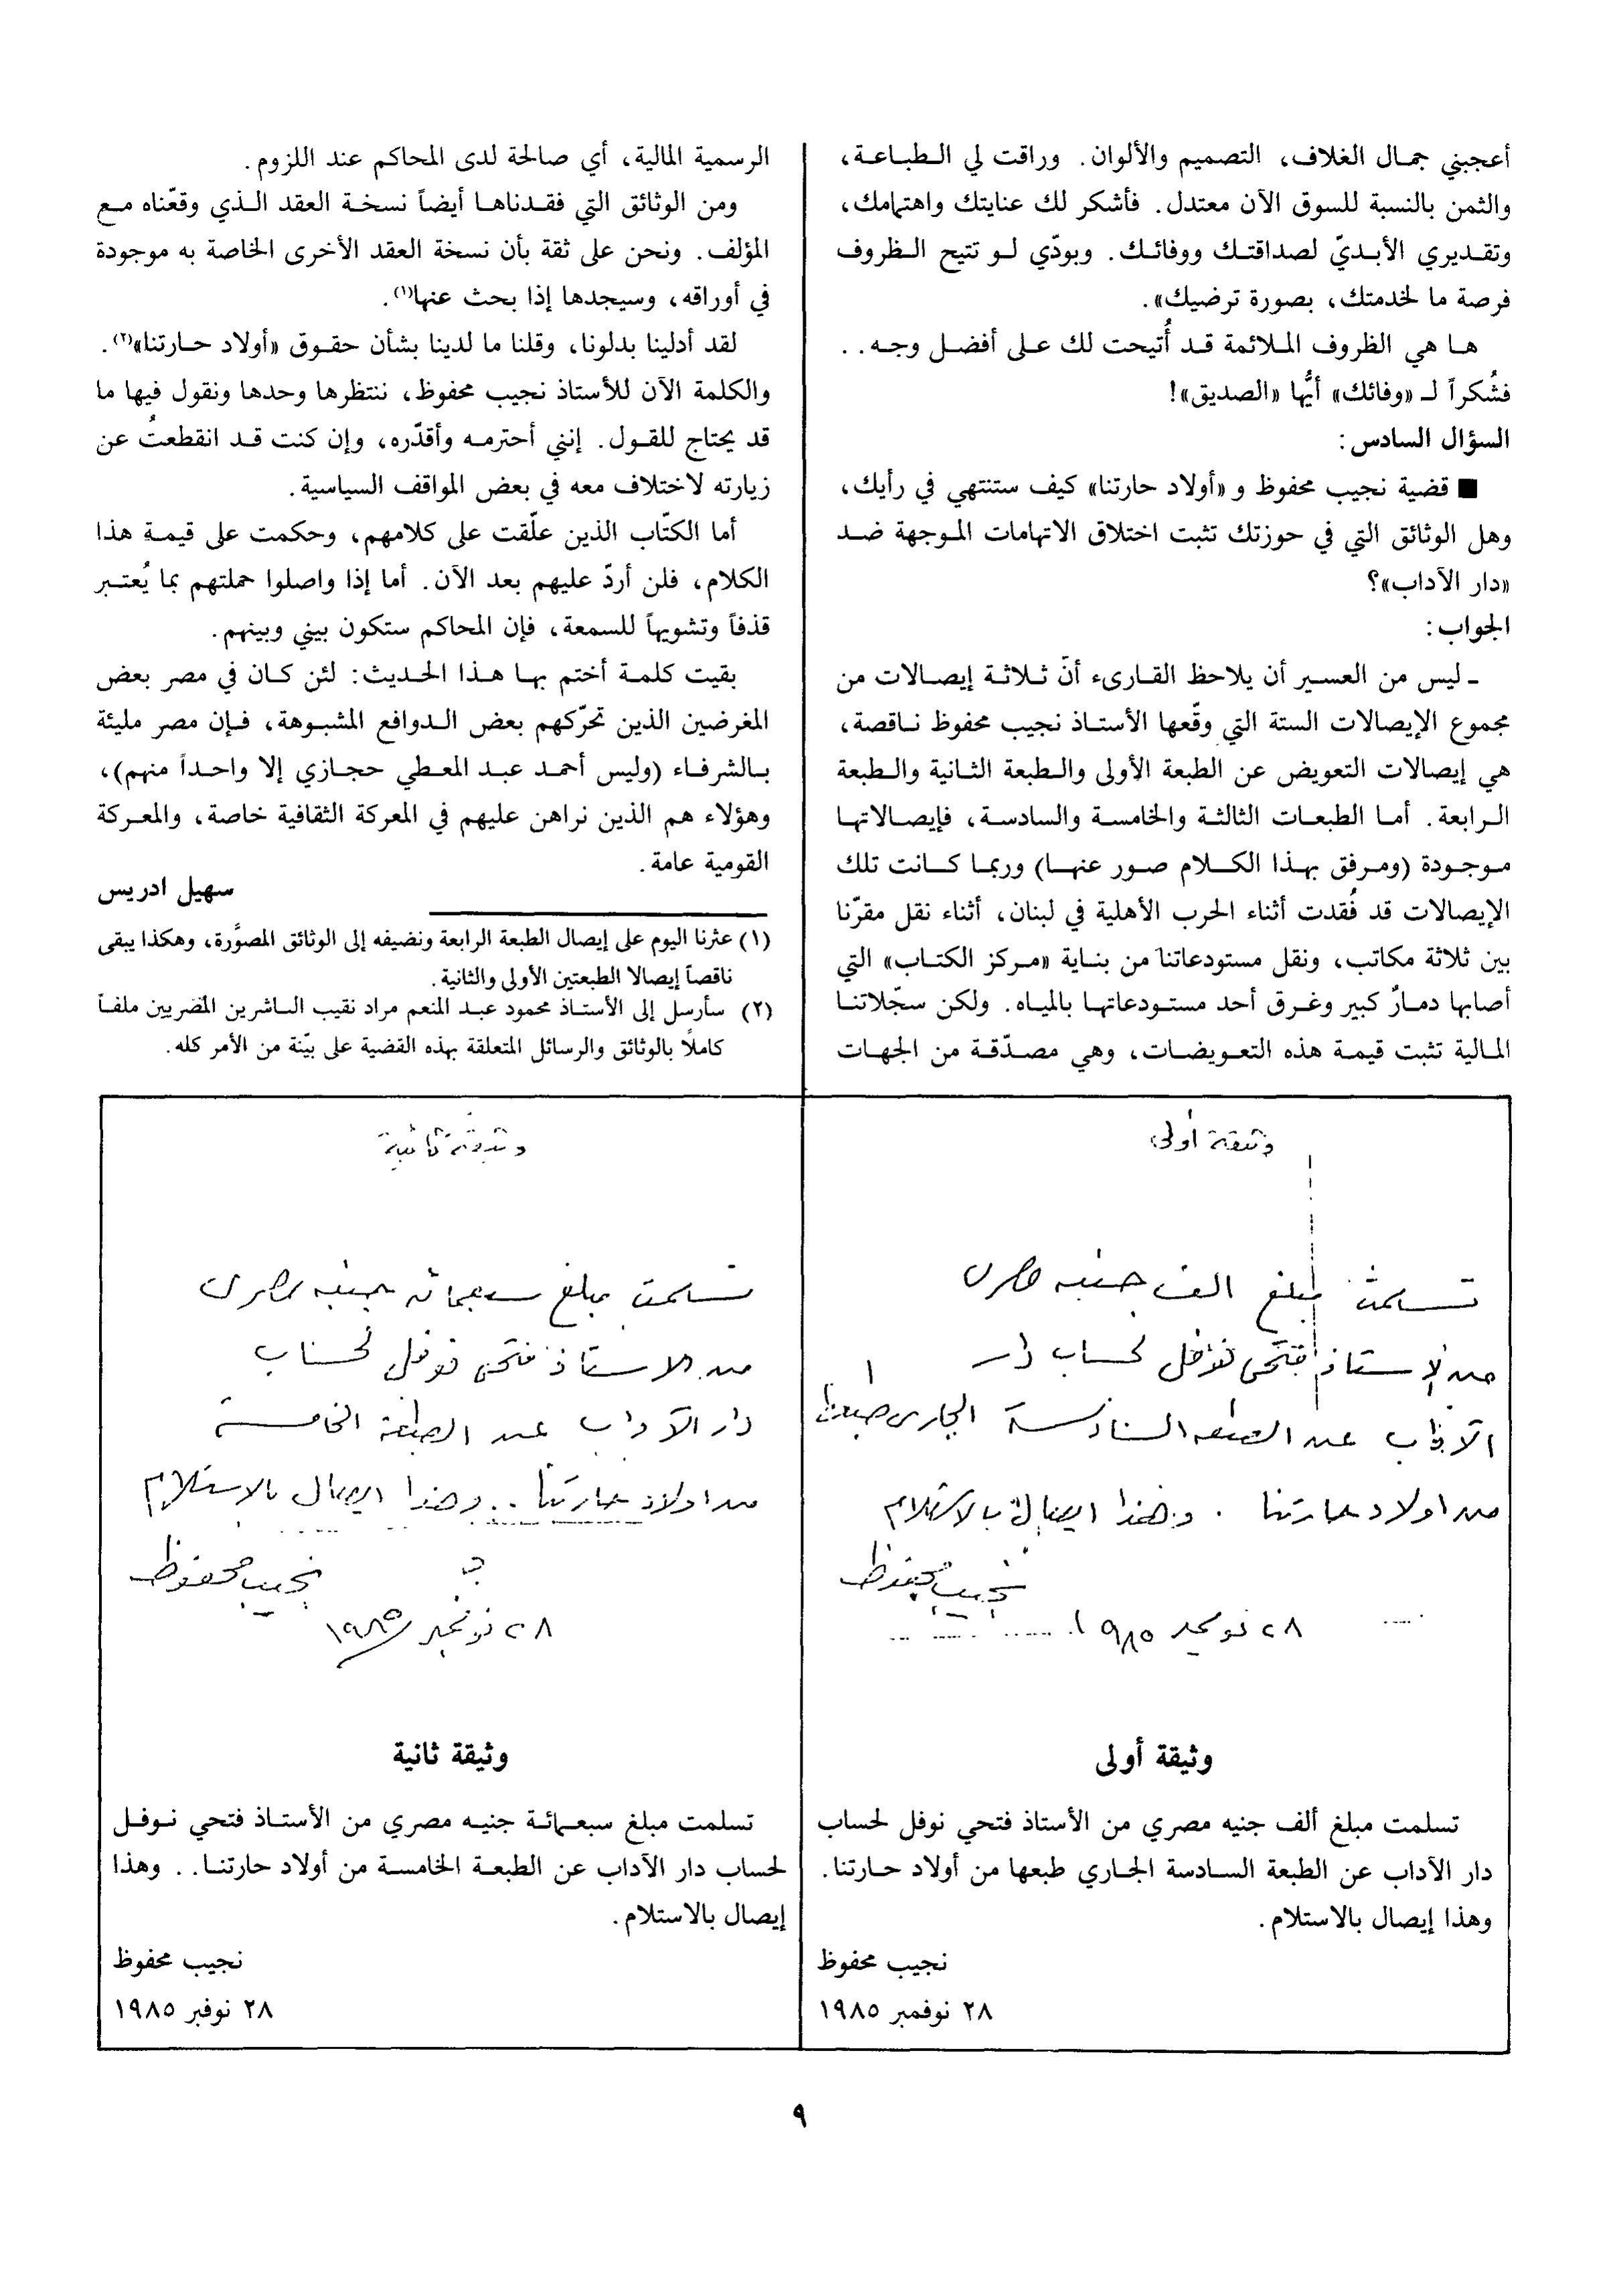 أعجبني جمال الغلاف، التصميم والألوان. وراقت لي الطباعة،
والثمن بالنسبة للسوق الآن معتدل. فأشكر لك عنايتك واهتمامك،
وتقديري الأبديّ لصداقتك ووفائك. وبودّي لو تتيح الظروف
فرصة ما لخدمتك، بصورة ترضيك».
ها هي الظروف الملائمة قد أُتيحت لك على أفضل وجه..
فشُكراً لـ «وفائك» أيُّها «الصديق»!
السؤال السادس:
■ قضية نجيب محفوظ و «أولاد حارتنا» كيف ستنتهي في رأيك،
وهل الوثائق التي في حوزتك تثبت اختلاق الاتهامات الموجهة ضد
«دار الآداب»؟
الجواب:
ـ ليس من العسير أن يلاحظ القارىء أنّ ثلاثة إيصالات من
مجموع الإيصالات الستة التي وقّعها الأستاذ نجيب محفوظ ناقصة،
هي إيصالات التعويض عن الطبعة الأولى والطبعة الثانية والطبعة
الرابعة. أما الطبعات الثالثة والخامسة والسادسة، فإيصالاتها
موجودة (ومرفق بهذا الكلام صور عنها) وربما كانت تلك
الإيصالات قد فُقدت أثناء الحرب الأهلية في لبنان، أثناء نقل مقرّنا
بين ثلاثة مكاتب، ونقل مستودعاتنا من بناية «مركز الكتاب» التي
أصابها دمارٌ كبير وغرق أحد مستودعاتها بالمياه. ولكن سجّلاتنا
المالية تثبت قيمة هذه التعويضات، وهي مصدّقة من الجهات
الرسمية المالية، أي صالحة لدى المحاكم عند اللزوم.
ومن الوثائق التي فقدناها أيضاً نسخة العقد الذي وقعّناه مع
المؤلف. ونحن على ثقة بأن نسخة العقد الأخرى الخاصة به موجودة
في أوراقه، وسيجدها إذا بحث عنها(١).
لقد أدلينا بدلونا، وقلنا ما لدينا بشأن حقوق «أولاد حارتنا»(٢).
والكلمة الآن للأستاذ نجيب محفوظ، ننتظرها وحدها ونقول فيها ما
قد يحتاج للقول. إنني أحترمه وأقدّره، وإن كنت قد انقطعتُ عن
زيارته لاختلاف معه في بعض المواقف السياسية.
أما الكتّاب الذين علّقت على كلامهم، وحكمت على قيمة هذا
الكلام، فلن أردّ عليهم بعد الآن. أما إذا واصلوا حملتهم بما يُعتبر
قذفاً وتشويهاً للسمعة، فإن المحاكم ستكون بيني وبينهم.
بقيت كلمة أختم بها هذا الحديث: لئن كان في مصر بعض
المغرضين الذين تحرّكهم بعض الدوافع المشبوهة، فإن مصر مليئة
بالشرفاء (وليس أحمد عبد المعطي حجازي إلا واحداً منهم)،
وهؤلاء هم الذين نراهن عليهم في المعركة الثقافية خاصة، والمعركة
القومية عامة.
سهيل ادريس
(١) عثرنا اليوم على إيصال الطبعة الرابعة ونضيفه إلى الوثائق المصوَّرة، وهكذا يبقى
ناقصاً إيصالا الطبعتين الأولى والثانية.
(٢) سأرسل إلى الأستاذ محمود عبد المنعم مراد نقيب الناشرين المصريين ملفاً
كاملاً بالوثائق والرسائل المتعلقة بهذه القضية على بيّنة من الأمر كله.
وثيقة أولى
تسلمت مبلغ الف جنيه مصرى
من الاستاذ فتحى نوفل لحساب دار
الآداب عن الطبعة السادسة الجارى طبعها
من اولاد حارتنا . وهذا ايصال بالاستلام
نجيب محفوظ
٢٨ نوفمبر ١٩٨٥
وثيقة أولى
تسلمت مبلغ ألف جنيه مصري من الأستاذ فتحي نوفل لحساب
دار الآداب عن الطبعة السادسة الجاري طبعها من أولاد حارتنا.
وهذا إيصال بالاستلام.
نجيب محفوظ
٢٨ نوفمبر ١٩٨٥
وثيقة ثانية
تسلمت مبلغ سبعمائه جنيه مصرى
من الاستاذ فتحى نوفل لحساب
دار الآداب عن الطبعة الخامسة
من اولاد حارتنا .. وهذا ايصال بالاستلام
نجيب محفوظ
٢٨ نوفمبر ١٩٨٥
وثيقة ثانية
تسلمت مبلغ سبعمائة جنيه مصري من الأستاذ فتحي نوفل
لحساب دار الآداب عن الطبعة الخامسة من أولاد حارتنا.. وهذا
إيصال بالاستلام.
نجيب محفوظ
٢٨ نوفبر ١٩٨٥
٩